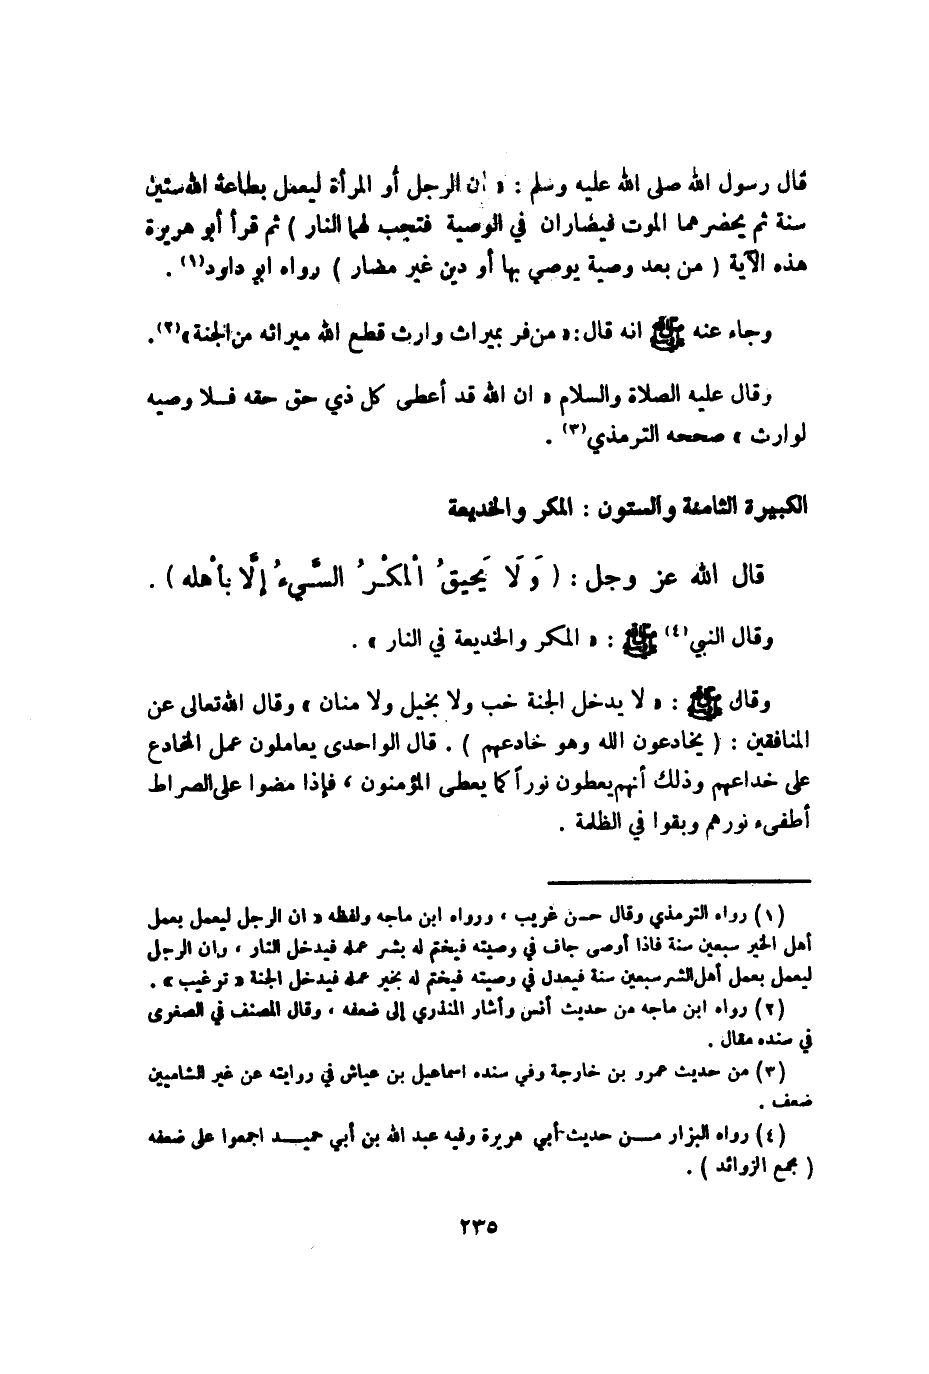 قال رسول الله صلى الله عليه وسلم : « ان الرجل أو المرأة ليعمل بطاعة الله ستين
سنة ثم يحضرهما الموت فيضاران في الوصية فتجب لهما النار ) ثم قرأ أبو هريرة
هذه الآية ( من بعد وصية يوصي بها أو دين غير مضار ) رواه ابو داود(١) .
وجاء عنه ﷺ انه قال : « من فر بميراث وارث قطع الله ميراثه من الجنة »(٢).
وقال عليه الصلاة والسلام « ان الله قد أعطى كل ذي حق حقه فـلا وصيه
لوارث » صححه الترمذي(٣) .
الكبيرة الثامنة والستون : المكر والخديعة
قال الله عز وجل : ( وَلَا يَحيقُ الْمكْرُ السَّيءُ إلَّا بأهْله ) .
وقال النبي(٤) ﷺ : « المكر والخديعة في النار » .
وقال ﷺ : « لا يدخل الجنة خب ولا بخيل ولا منان » وقال الله تعالى عن
المنافقين : ( يخادعون الله وهو خادعهم ) . قال الواحدى يعاملون عمل المخادع
على خداعهم وذلك أنهم يعطون نوراً كما يعطى المؤمنون ، فإذا مضوا على الصراط
أطفيء نورهم وبقوا في الظلمة .
(١) رواه الترمذي وقال حسن غريب ، ورواه ابن ماجه ولفظه « ان الرجل ليعمل بعمل
أهل الخير سبعين سنة فاذا أوصى جاف في وصيته فيختم له بشر عمله فيدخل النار ، وان الرجل
ليعمل بعمل أهل الشر سبعين سنة فيعدل في وصيته فيختم له بخير عمله فيدخل الجنة « ترغيب » .
(٢) رواه ابن ماجه من حديث أنس وأشار المنذري إلى ضعفه ، وقال المصنف في الصغرى
في سنده مقال .
(٣) من حديث عمرو بن خارجة وفي سنده اسماعيل بن عياش في روايته عن غير الشاميين
ضعف .
(٤) رواه البزار مـن حديث أبي هريرة وفيه عبد الله بن أبي حميـد اجمعوا على ضعفه
( مجمع الزوائد ) .
٢٣٥